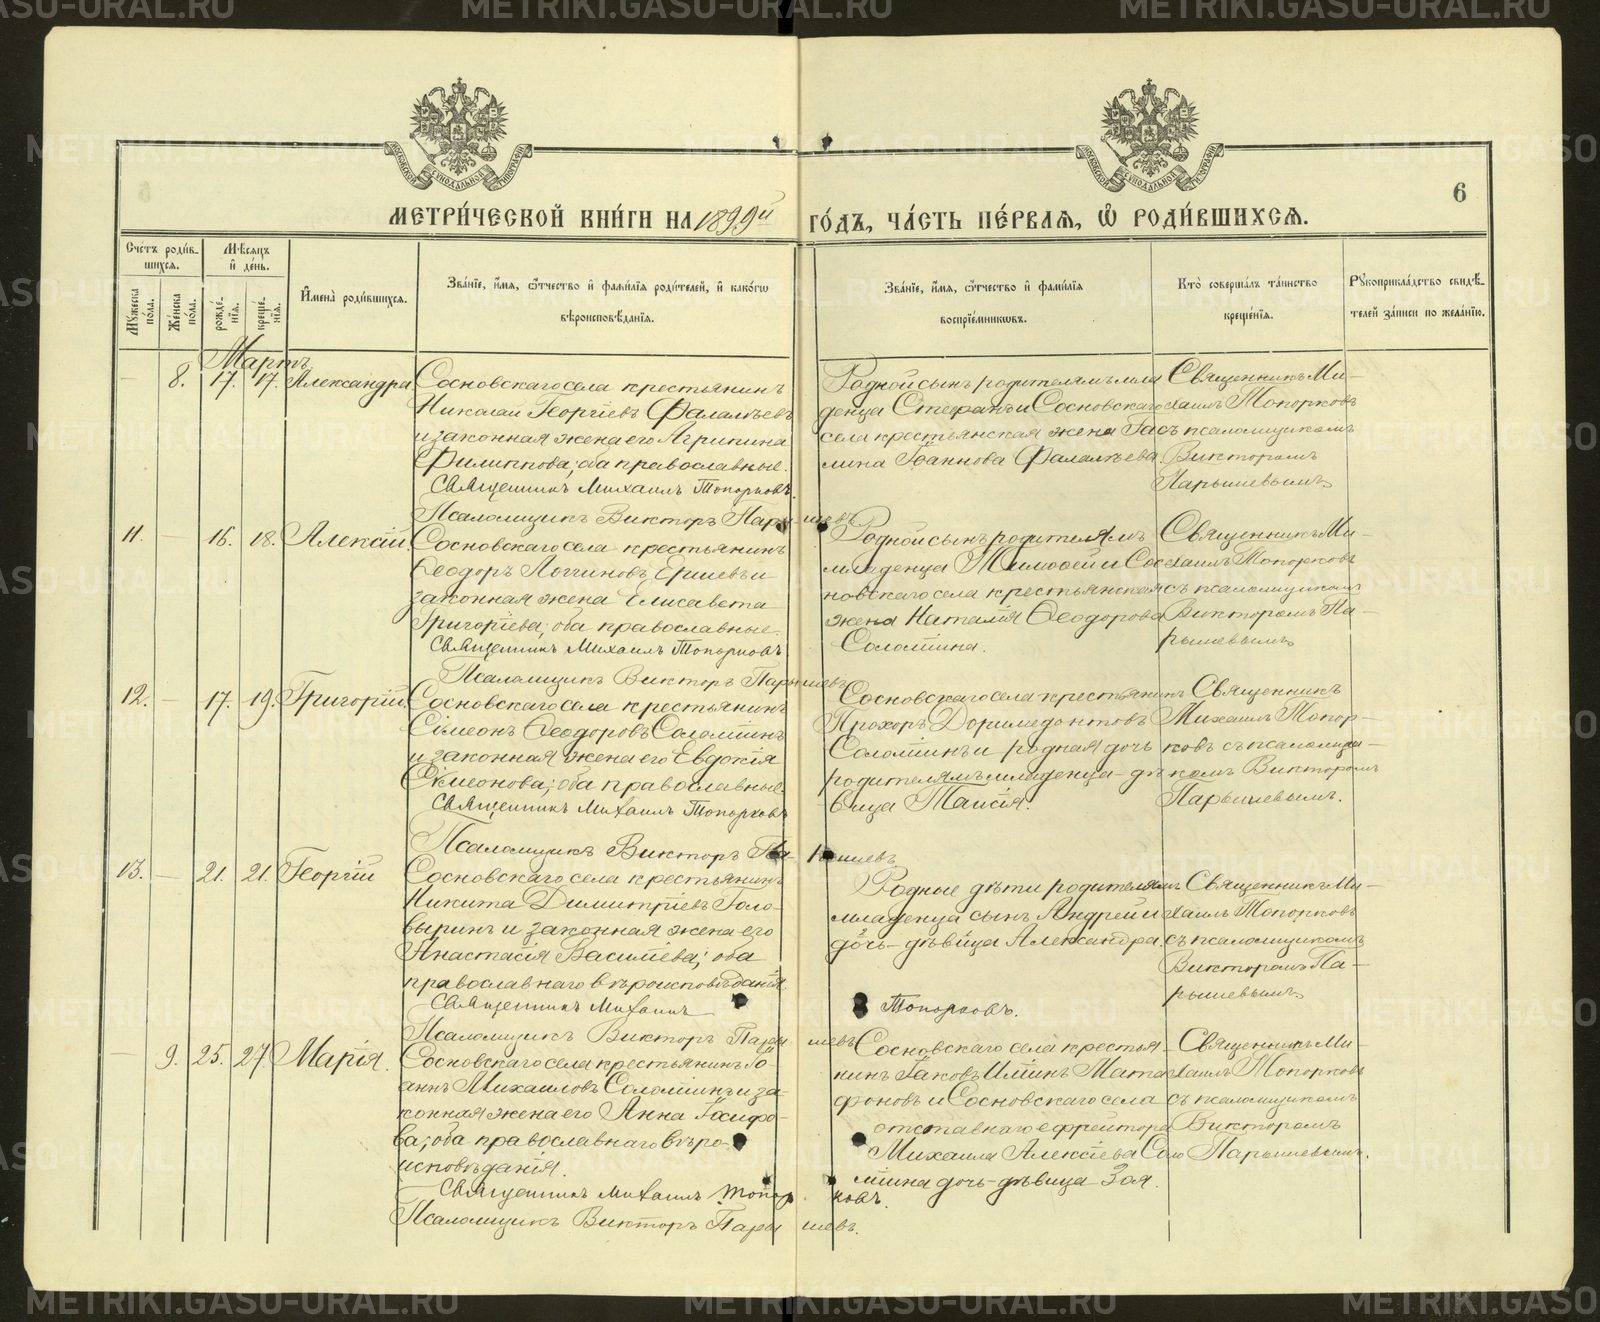 6
МЕТРИ́ЧЕСКОЙ КНИ́ГИ НА 1899й ГО́ДЪ, ЧА́СТЬ ПЕ́РВАЯ, Ѽ РОДИ́ВШИХСЯ.
Сче́тъ роди́в-
шихся.
Мѣ́сяцъ
и҆ де́нь.
Мꙋ́жеска по́ла.
Же́нска по́ла.
рожде́-
нїя.
креще́-
нїя.
И҆мена̀ роди́вшихся.
Зва́нїе, и҆́мя, ѻ҆́тчество и҆ фами́лїя роди́телей, и҆ како́гѡ
вѣроисповѣ́данїя.
Зва́нїе, и҆́мя, ѻ҆́тчество и҆ фами́лїя
воспрїе́мникѡвъ.
Кто̀ соверша́лъ та́инство
креще́нїя.
Рꙋкоприкла́дство свидѣ́-
телей за́писи по жела́нїю.
Мартъ
8. 17. 17. Александра
Сосновскаго села крестьянинъ
Николай Георгіевъ Фалалѣевъ
и законная жена его Агрипина
Филиппова; оба православные.
Священникъ Михаилъ Топорковъ.
Псаломщикъ Викторъ Пары-шевъ.
Родной сынъ родителямъ мла
денца Стефанъ и Сосновскаго
села крестьянская жена Га
лина Іоаннова Фалалѣева.
Священникъ Ми-
хаилъ Топорковъ
съ псаломщикомъ
Викторомъ
Парышевымъ
11. 16. 18. Алексій.
Сосновскаго села крестьянинъ
Ѳеодоръ Логгиновъ Ершевъ и
законная жена Елисавета
Григоріева; оба православные.
Священникъ Михаилъ Топорковъ
Псаломщикъ Викторъ Парышевъ
Родной сынъ родителямъ
младенца Тимоѳей и Сос
новскаго села крестьянская
жена Наталія Ѳеодорова
Соломіина.
Священникъ Ми-
хаилъ Топорковъ
съ псаломщикомъ
Викторомъ Па-
рышевымъ
12. 17. 19. Григорій.
Сосновскаго села крестьянинъ
Сімеонъ Ѳеодоровъ Соломіинъ
и законная жена его Евдокія
Сімеонова; оба православные.
Священникъ Михаилъ Топорковъ
Псаломщикъ Викторъ Па-рышевъ
Сосновскаго села крестьянинъ
Прохоръ Доримедонтовъ
Соломіинъ и родная дочь
родителямъ младенца - дѣ
вица Таисія.
Священникъ
Михаилъ Топор-
ковъ съ псаломщи-
комъ Викторомъ
Парышевымъ.
13. 21. 21. Георгій
Сосновскаго села крестьянинъ
Никита Димитріевъ Голо-
выринъ и законная жена его
Анастасія Василіева; оба
православнаго вѣроисповѣданія.
Священникъ Михаилъ Топорковъ.
Псаломщикъ Викторъ Парышевъ
Родные дѣти родителямъ
младенца сынъ Андрей и
дочь - дѣвица Александра
Священникъ Ми-
хаилъ Топорковъ
съ псаломщикомъ
Викторомъ Па-
рышевымъ
9. 25. 27. Марія.
Сосновскаго села крестьянинъ Іо-
аннъ Михаиловъ Соломіинъ и за-
конная жена его Анна Іосифо-
ва; оба православнаго вѣро-
исповѣданія.
Священникъ Михаилъ Топорковъ.
Псаломщикъ Викторъ Парышевъ.
Сосновскаго села крестья-
нинъ Іаковъ Матѳа
фоновъ и Сосновскаго села
отставнаго ефрейтора
Михаила Алексіева Соло
міина дочь - дѣвица Зоя.
Священникъ Ми-
хаилъ Топорковъ
съ псаломщикомъ
Викторомъ
Парышевымъ.
METRIKI.GASU-URAL.RU